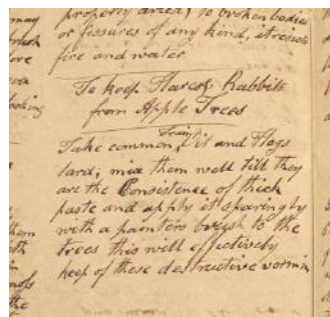 properly dried, to broken bodies
or fissures of any kind, it resists
fire and water
To keep Hares & Rabbits
from Apple Trees
Train
Take common Oil and Hogs
lard, mix them well till they
are the Consistence of thick
paste and apply it sparingly
with a painters brush to the
trees this will effectively
keep of these destructive vermin